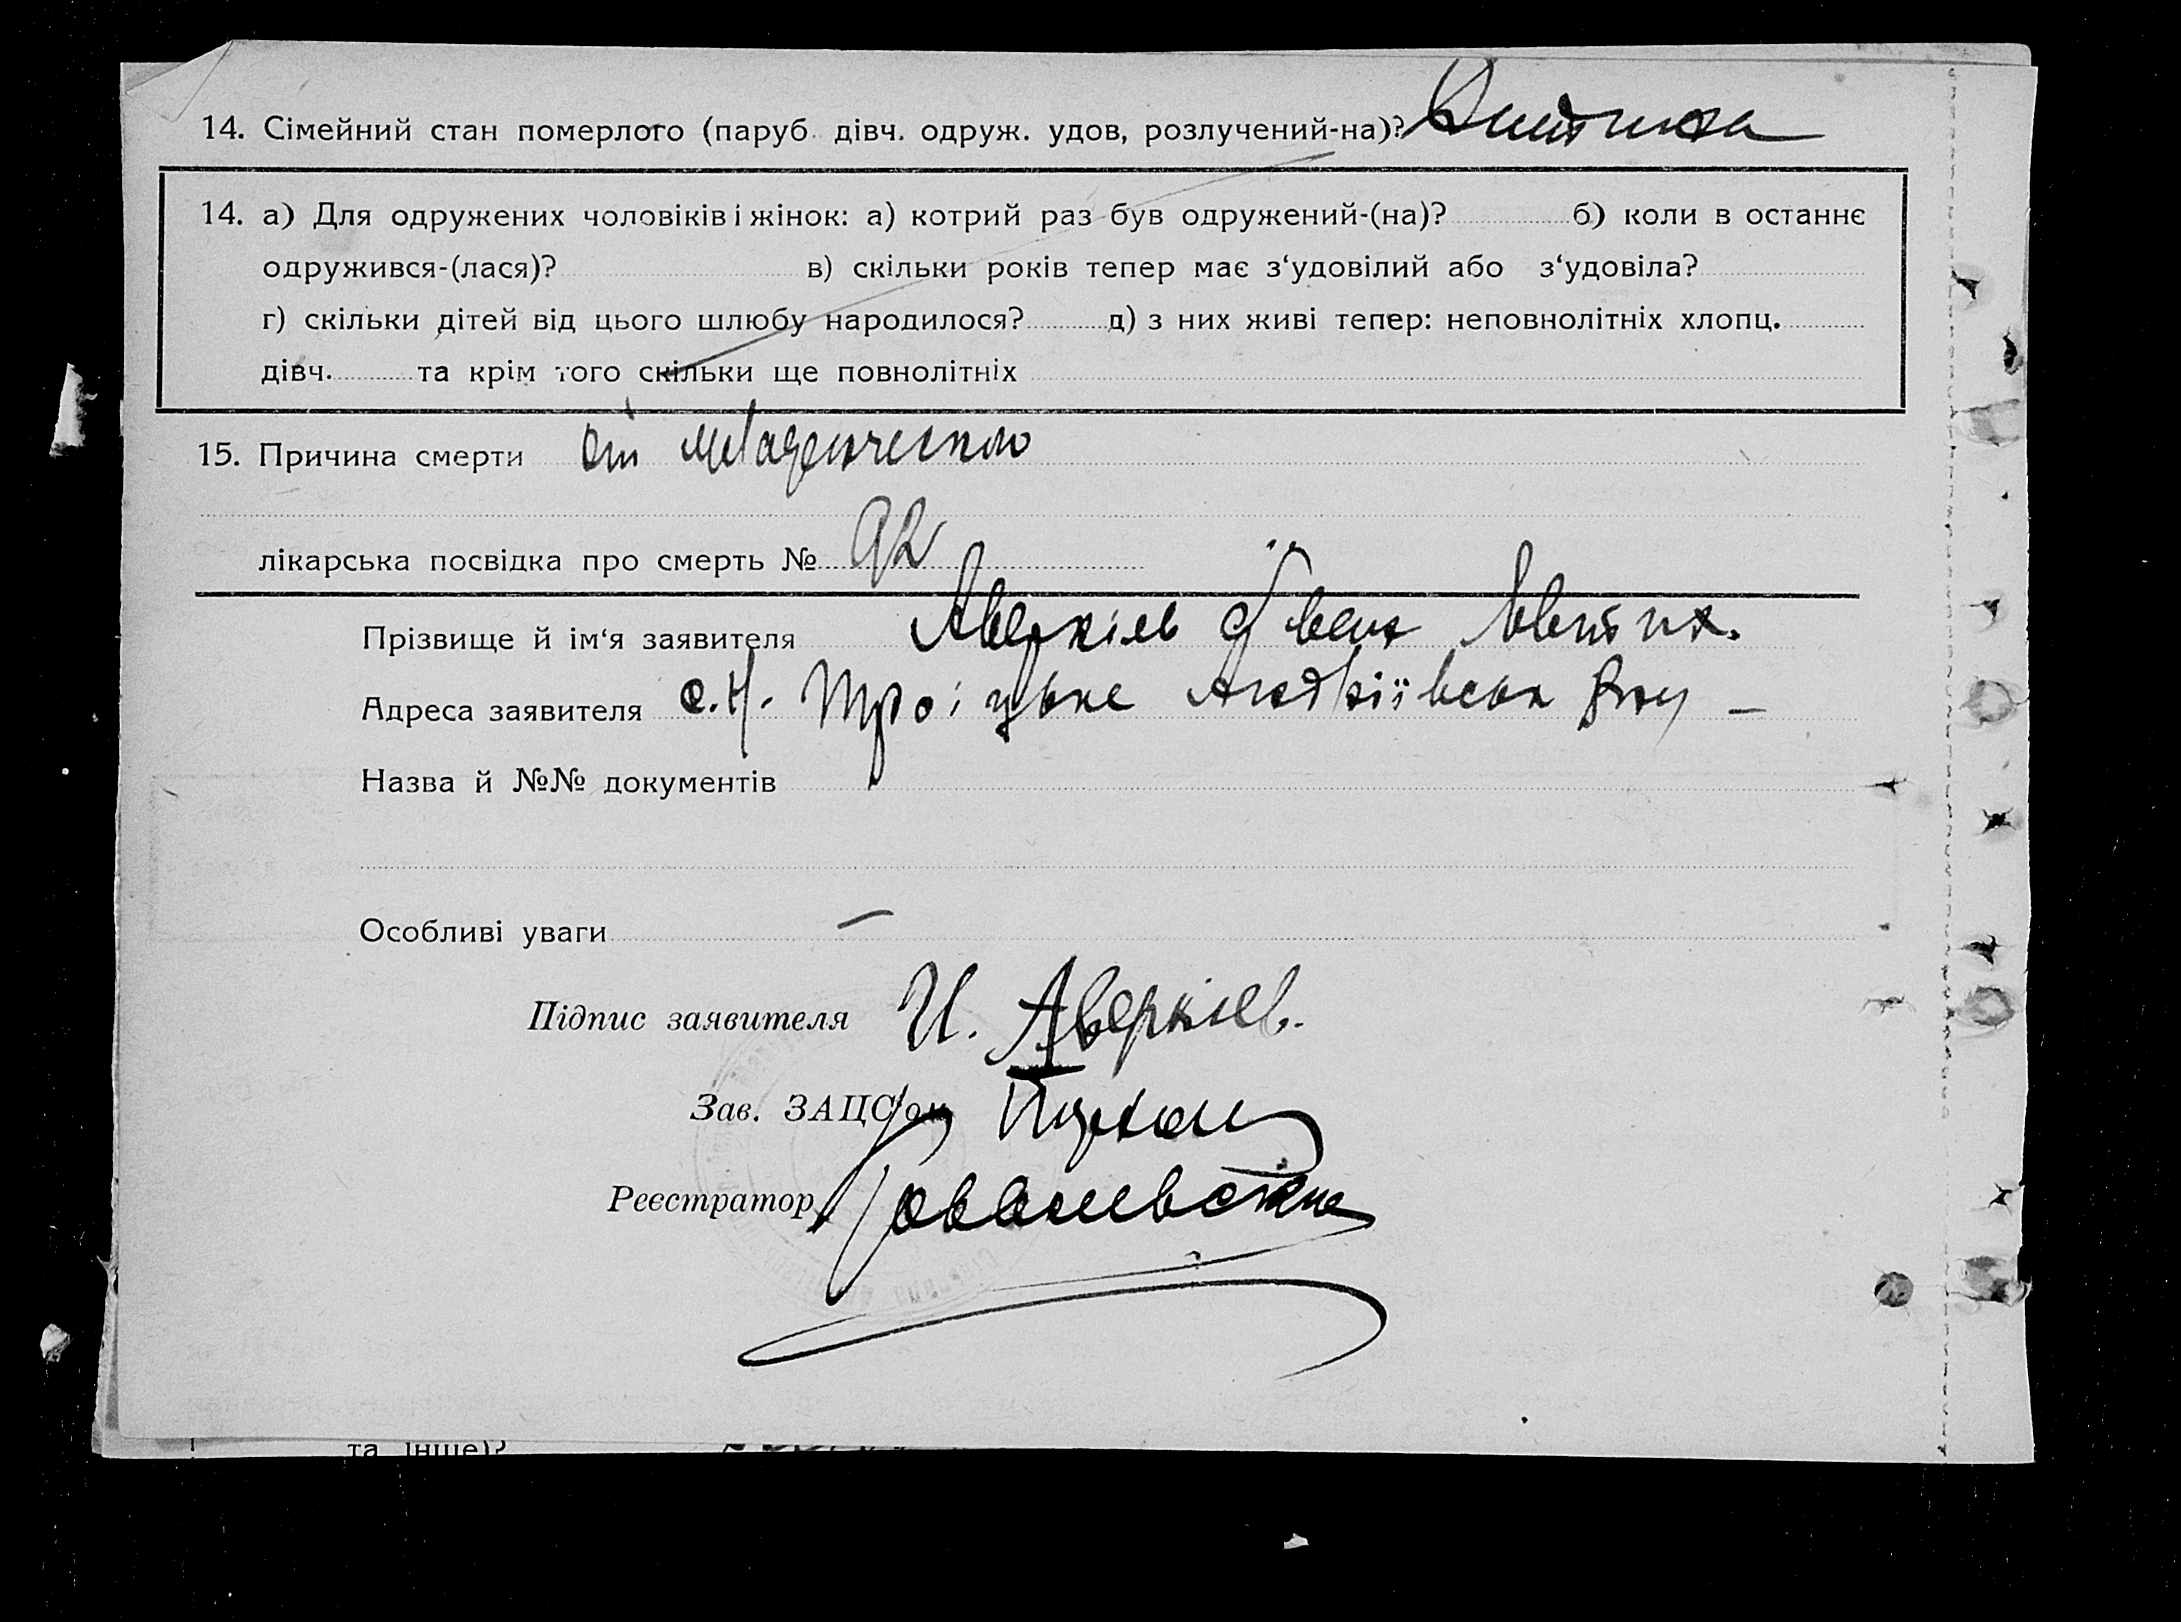 14. Сімейний стан померлого (паруб. дівч. одруж. удов, розлучений-на)? Дитина
14. а) Для одружених чоловіків і жінок: а) котрий раз був одружений-(на)? б) коли в останнє
одружився-(лася)? в) скільки років тепер має з‘удовілий або з‘удовіла?
г) скільки дітей від цього шлюбу народилося? д) з них живі тепер: неповнолітніх хлопц.
дівч. та крім того скільки ще повнолітніх
15. Причина смерти от младенческого
лікарська посвідка про смерть № 92
Прізвище й ім‘я заявителя Аверкіев
Адреса заявителя с. Н. Троіцьке
Назва й №№ документів
Особливі уваги —
Підпис заявителя И. Аверкіев.
Зав. ЗАЦС‘ом
Реєстратор
та інше)?